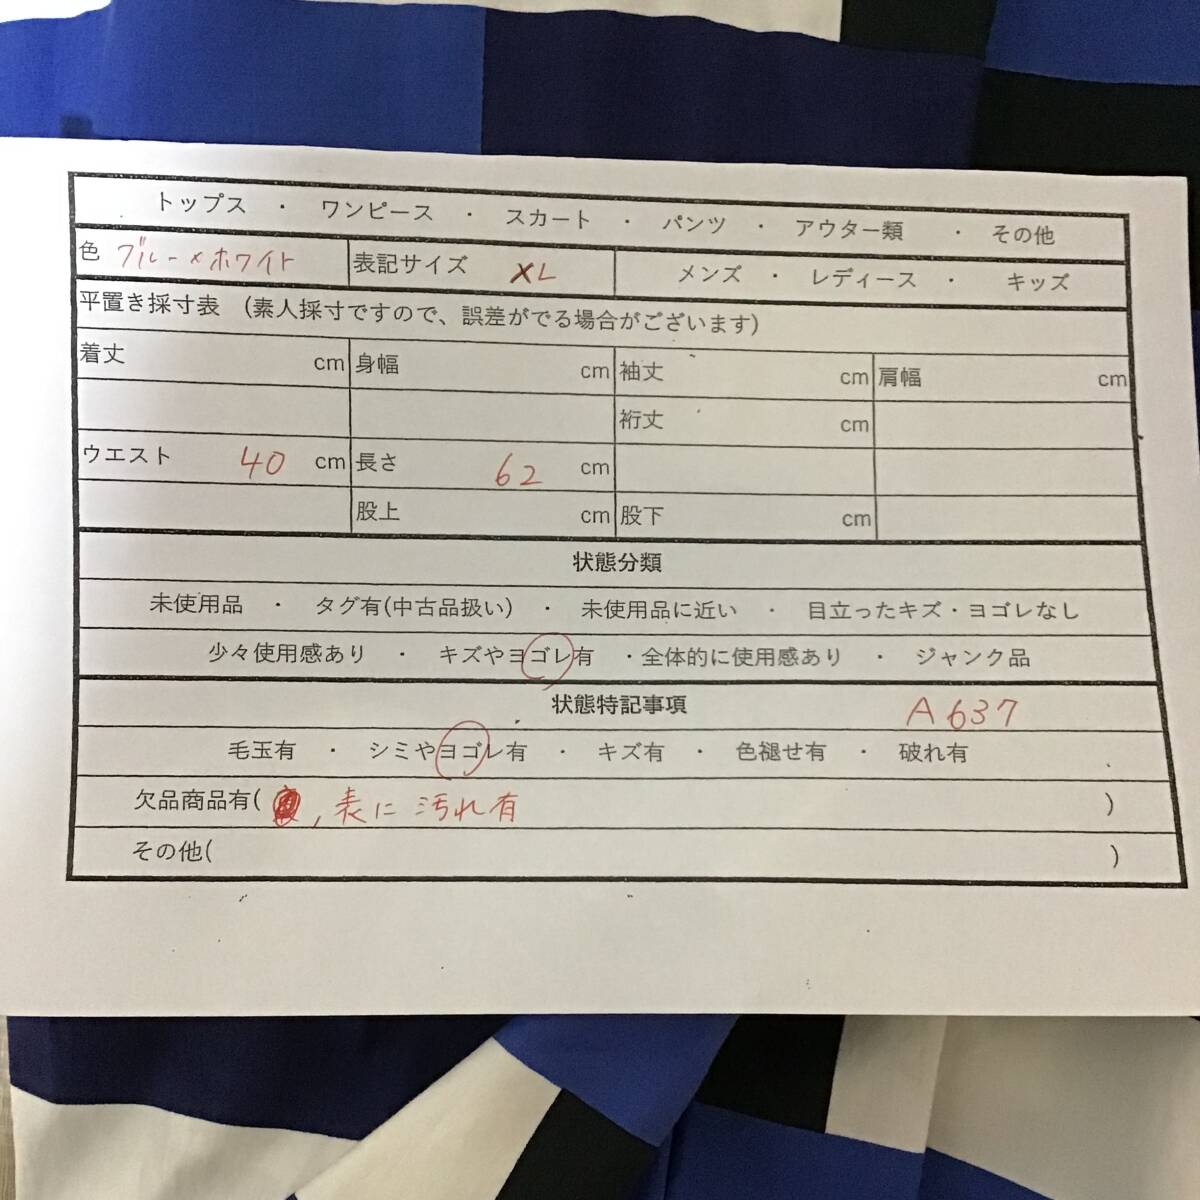 トップス ・ ワンピース ・ スカート ・ パンツ ・ アウター類 ・ その他
色 ブルー×ホワイト 表記サイズ XL メンズ ・ レディース ・ キッズ
平置き採寸表 (素人採寸ですので、誤差がでる場合がございます)
着丈 cm 身幅 cm 袖丈 cm 肩幅 cm
裄丈 cm
ウエスト 40 cm 長さ 62 cm
股上 cm 股下 cm
状態分類
未使用品 ・ タグ有(中古品扱い) ・ 未使用品に近い ・ 目立ったキズ・ヨゴレなし
少々使用感あり ・ キズやヨゴレ有 ・全体的に使用感あり ・ ジャンク品
状態特記事項 A637
毛玉有 ・ シミやヨゴレ有 ・ キズ有 ・ 色褪せ有 ・ 破れ有
欠品商品有( , 表に汚れ有 )
その他( )